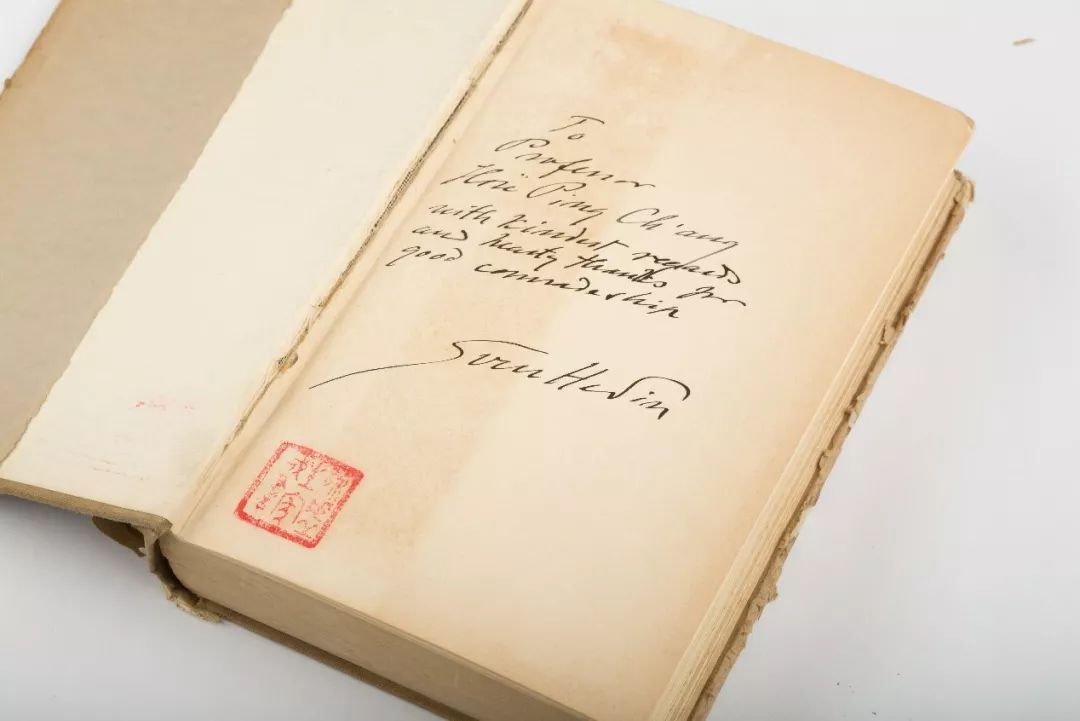 To
Professor
Hsi Ping Ch'ang
with kindest regards
and hearty thanks for
good comradeship
Sven Hedin